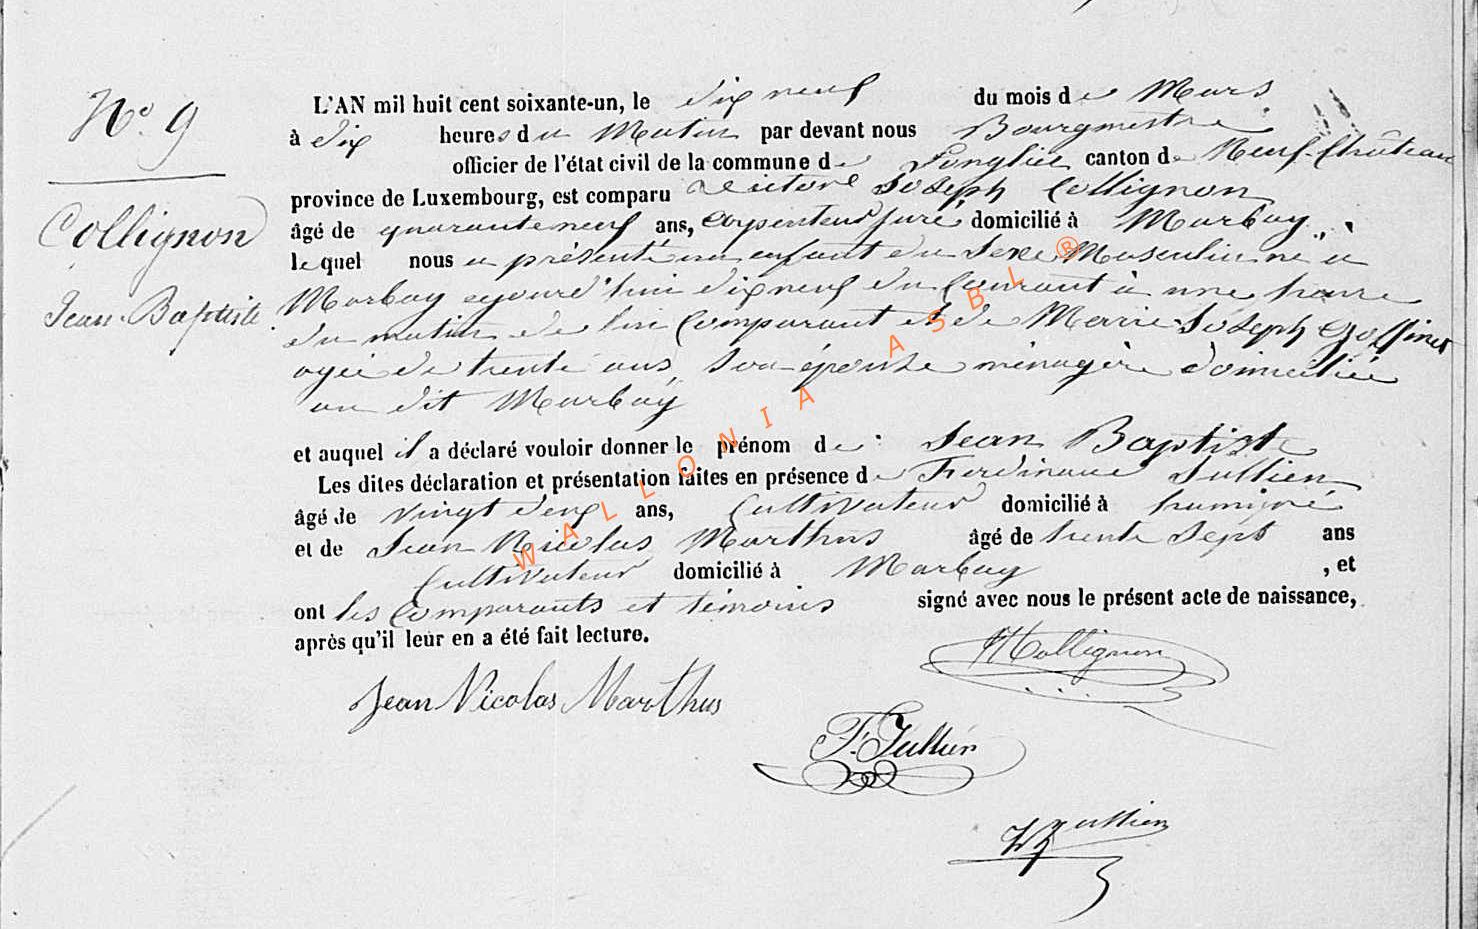 N.º 9
Collignon
Jean Baptiste
L'AN mil huit cent soixante-un, le dix neuf du mois de Mars
à dix heures du Matin par devant nous Bourgmestre
officier de l'état civil de la commune de Longlier canton de Neuf-Château
province de Luxembourg, est comparu Joseph Collignon
âgé de quarante neuf ans, arpenteur juré, domicilié à Marbay
lequel nous a présenté un enfant du Sexe Masculin né à
Marbay aujourd'hui dix neuf du Courant à une heure
du matin de lui Comparant et de Marie Joseph Goffinet
agée de trente ans, son épouse ménagère domiciliée
au dit Marbay
et auquel il a déclaré vouloir donner le prénom de Jean Baptiste
Les dites déclaration et présentation faites en présence de Ferdinand Jullien
âgé de vingt deux ans, Cultivateur domicilié à
et de Jean Nicolas Marthus âgé de trente Sept ans
Cultivateur domicilié à Marbay, et
ont les Comparants et témoins signé avec nous le présent acte de naissance,
après qu'il leur en a été fait lecture.
Collignon
Jean Nicolas Marthus
F. Jullien
Jullien
WALLONIA ASBL ®